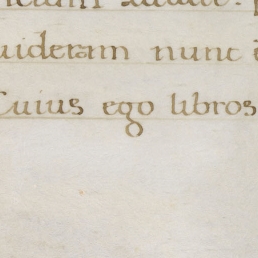 uideram nunc
Cuius ego libros